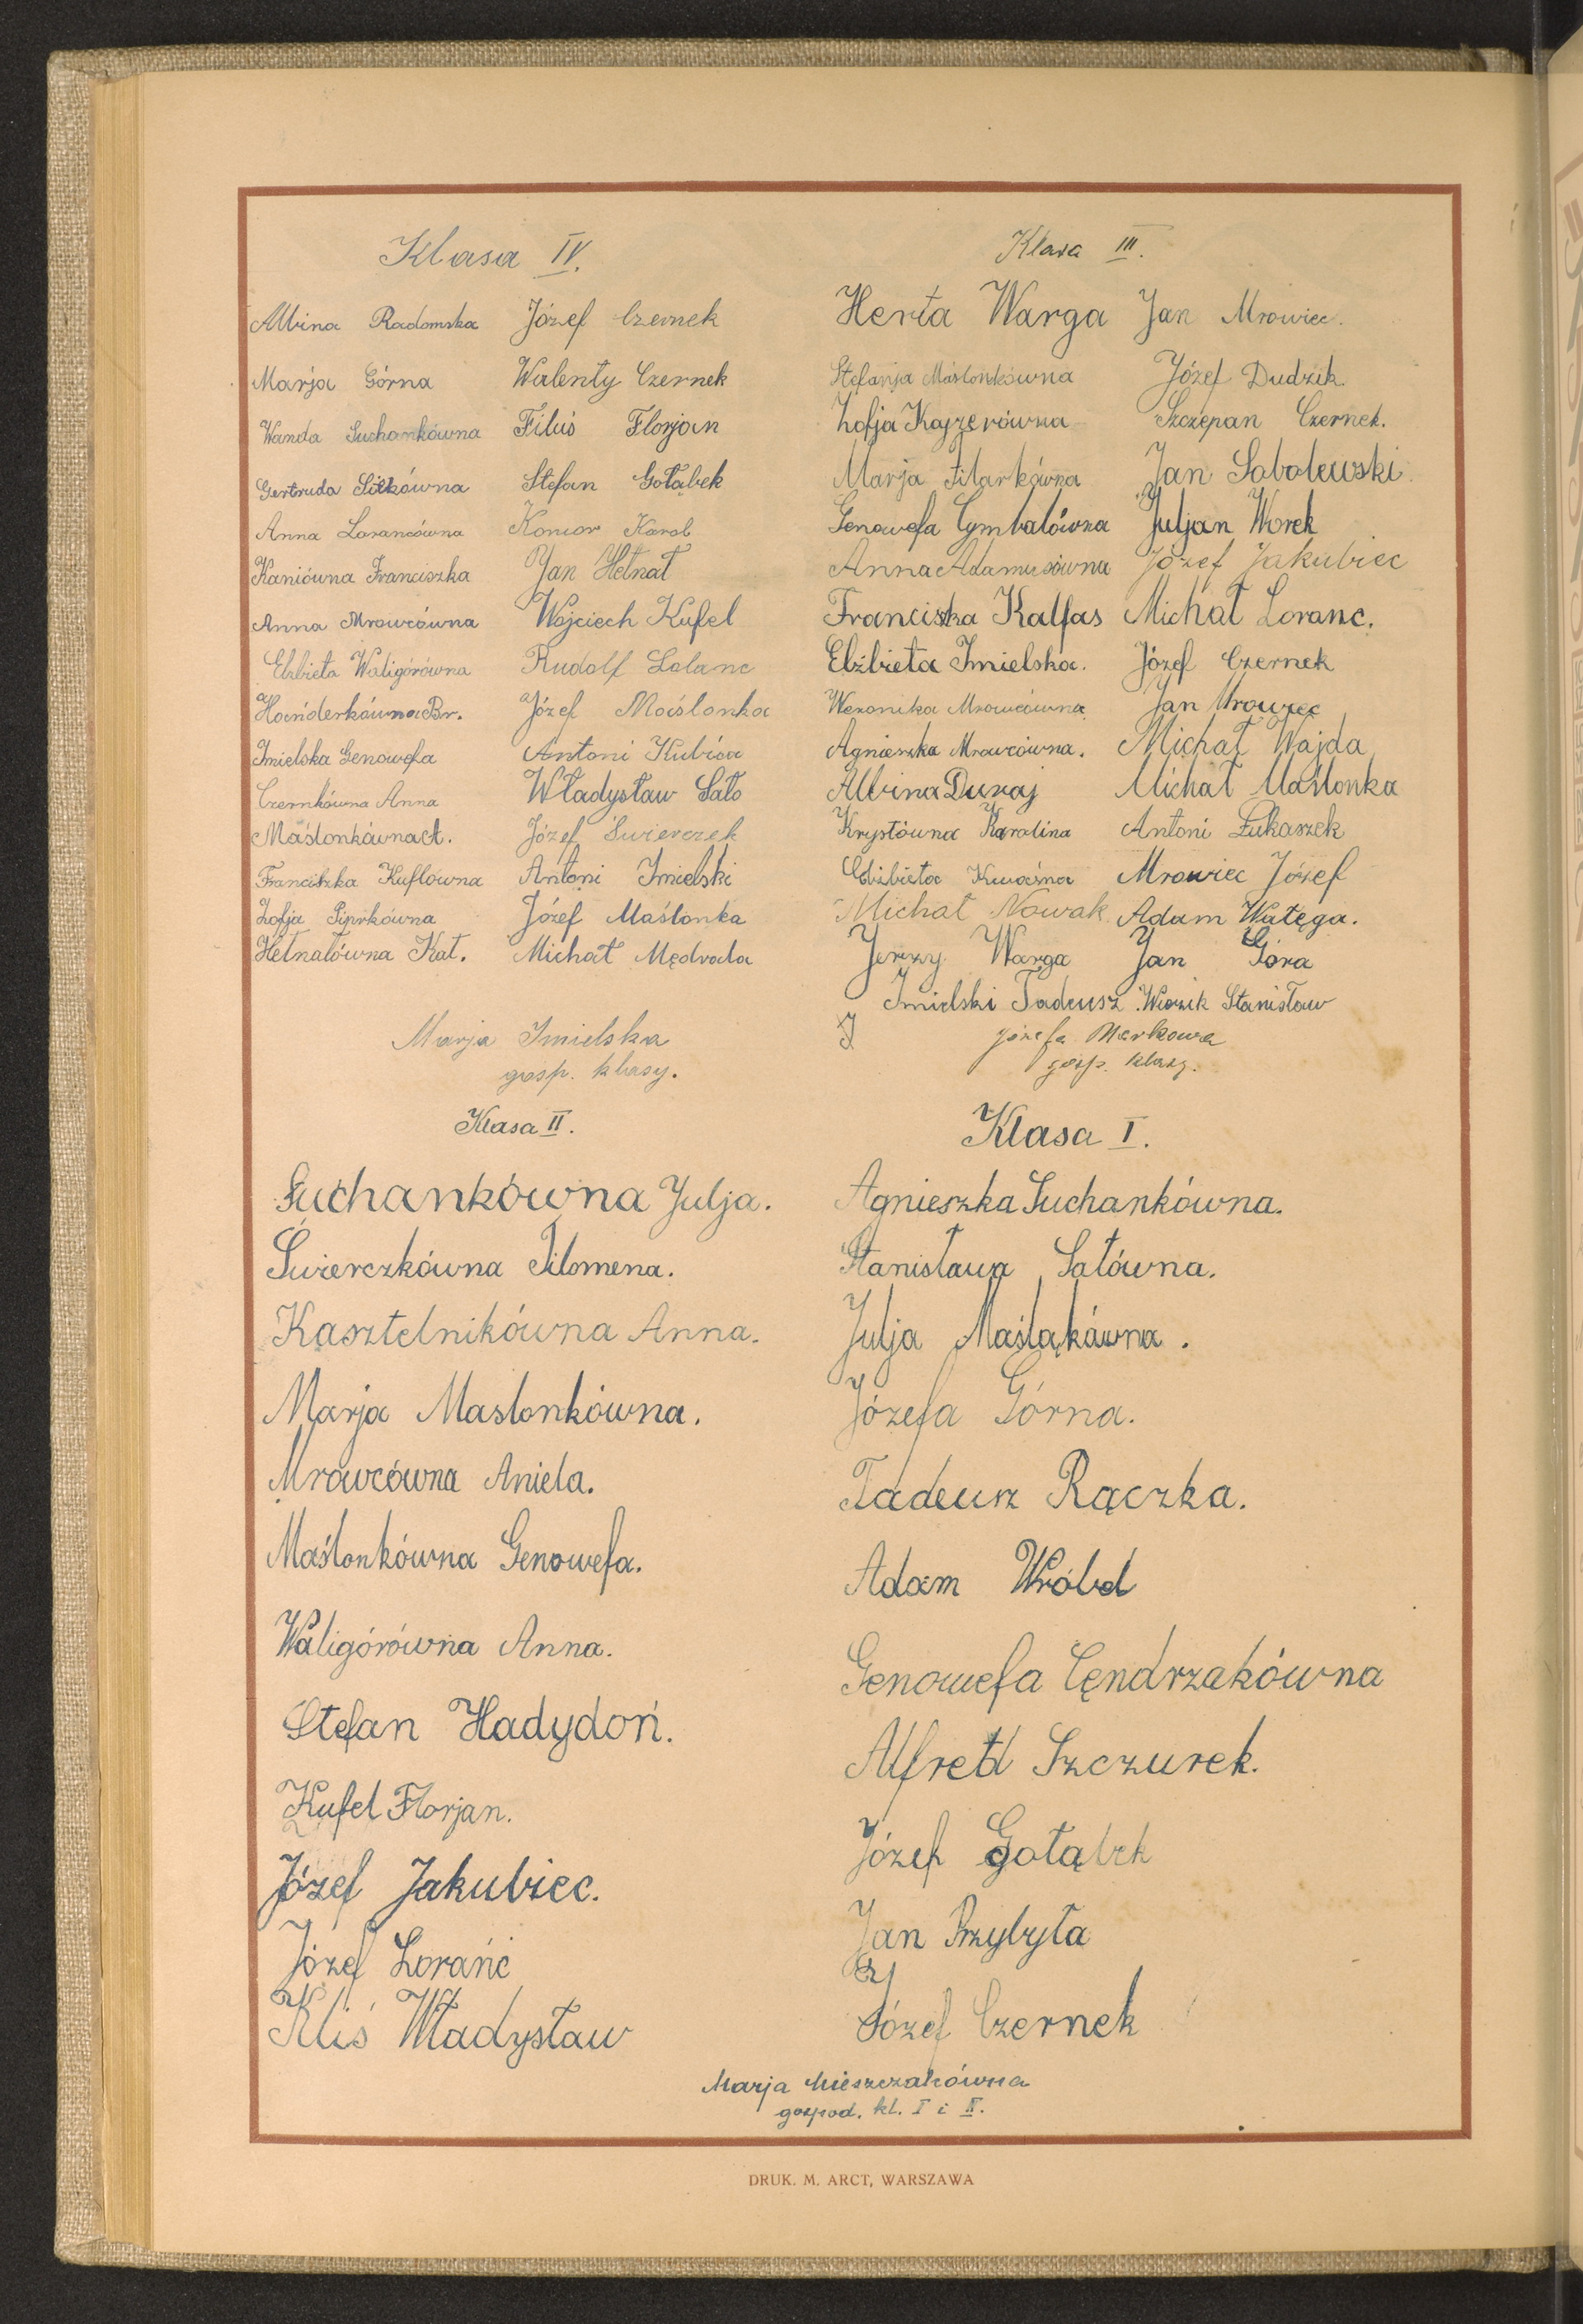 Klasa IV.
Albina Radomska
Marja Górna
Wanda Suchankówna
Gertruda Sitkówna
Anna Lorancówna
Kaniówna Franciszka
Anna Mrowcówna
Elżbieta Waligórówna
Hańderkówna Br.
Imielska Genowefa
Czernkówna Anna
Maślonkówna A.
Franciszka Kuflówna
Zofja Piprkówna
Hetnałówna Kat.
Józef Czernek
Walenty Czernek
Filuś Florjan
Stefan Gołąbek
Konior Karol
Jan Hetnał
Wojciech Kufel
Rudolf Lalanc
Józef Maślonka
Antoni Kubica
Władysław Sato
Józef Świerczek
Antoni Imielski
Józef Maślonka
Michał Mędrala
Marja Imielska
gosp. klasy.
Klasa III.
Herta Warga
Stefanja Maślonkówna
Zofja Kajzerówna
Marja Filarkówna
Genowefa Cymbałówna
Anna Adamusówna
Franciszka Kalfas
Elżbieta Imielska.
Weronika Mrowcówna
Agnieszka Mrowcówna.
Albina Duraj
Krystówna Karolina
Elżbieta Kwaśna
Michał Nowak
Jerzy Warga
Imielski Tadeusz
Jan Mrowiec.
Józef Dudzik.
Szczepan Czernek.
Jan Sobolewski
Juljan Worek
Józef Jakubiec
Michał Loranc.
Józef Czernek
Jan Mrowiec
Michał Wajda
Michał Maślonka
Antoni Łukaszek
Mrowiec Józef
Adam Wałęga.
Jan Góra
Wiozik Stanisław
J
Józefa Markowa
gosp. klasy.
Klasa II.
Suchankówna Julja.
Świerczkówna Filomena.
Kasztelnikówna Anna.
Marja Maslonkówna.
Mrowcówna Aniela.
Maślonkówna Genowefa.
Waligórówna Anna.
Stefan Hadydoń.
Kufel Florjan.
Józef Jakubiec.
Józef Lorańc
Kliś Władysław
Klasa I.
Agnieszka Suchankówna.
Stanisława Satówna.
Julja Maśląkówna.
Józefa Górna.
Tadeusz Rączka.
Adam Wróbel
Genowefa Cęndrzakówna
Alfred Szczurek.
Józef Gołąbek
Jan Przybyła
Józef Czernek
Marja Mieszczakówna
gospod. kl. I i II.
DRUK. M. ARCT, WARSZAWA